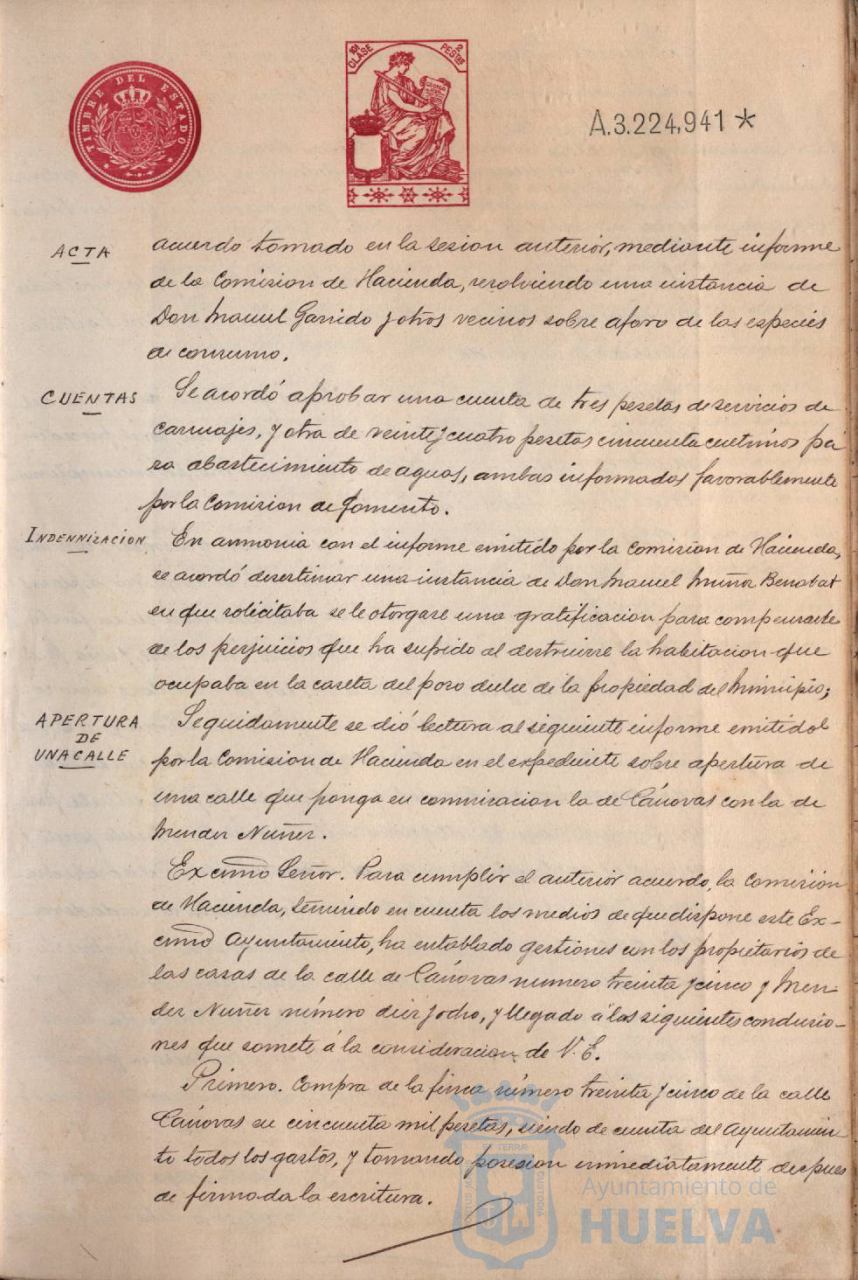 TIMBRE DEL ESTADO
10ª CLASE
2 PESTAS
A.3.224,941 *
ACTA
acuerdo tomado en la sesion anterior, mediante informe
de la Comision de Hacienda, resolviendo una instancia de
Don Manuel Garrido y otros vecinos sobre aforo de las especies
de consumo.
CUENTAS
Se acordó aprobar una cuenta de tres pesetas de servicios de
carruajes, y otra de veinte y cuatro pesetas cincuenta centimos pa
ra abastecimiento de aguas, ambas informadas favorablemente
por la Comision de Fomento.
INDENNIZACION
En armonia con el informe emitido por la Comision de Hacienda,
se acordó desestimar una instancia de Don Manuel Muña Benabat
en que solicitaba se le otorgase una gratificacion para compensarle
de los perjuicios que ha sufrido al destruirse la habitacion que
ocupaba en la caseta del pozo dulce de la propiedad del Municipio;
APERTURA
DE
UNA CALLE
Seguidamente se dió lectura al siguiente informe emitido
por la Comision de Hacienda en el expediente sobre apertura de
una calle que ponga en comunicacion la de Cánovas con la de
Mendez Nuñez.
Excmo Señor. Para cumplir el anterior acuerdo, la Comisión
de Hacienda, teniendo en cuenta los medios de que dispone este Ex-
cmo Ayuntamiento, ha entablado gestiones con los propietarios de
las casas de la calle de Cánovas numero treinta y cinco y Men
dez Nuñez número diez y ocho, y llegado á las siguientes conclusio-
nes que somete á la consideracion de V. E.
Primero. Compra de la finca número treinta y cinco de la calle
Cánovas en cincuenta mil pesetas, siendo de cuenta del Ayuntamien
to todos los gastos, y tomando posesion inmediatamente despues
de firmada la escritura.
Ayuntamiento de
HUELVA